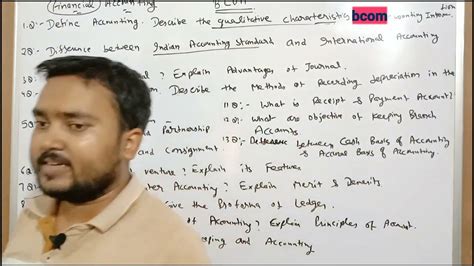 (Financial) Accounting BCOM
1.Q:- Define Accounting. Describe the qualitative characteristics bcom
2Q:- Difference between Indian Accounting Standard and International Accounting
? Explain Advantages of Journal.
Describe the Methods of Recording depreciation in the
11Q:- What is Receipt & Payment Account?
12Q:- What are objective of Keeping Branch
Partnership Accounts
13Q:- Difference between Cash Basis of Accounting
and Consignment & Accrual Basis of Accounting.
venture? Explain its Features
Accounting? Explain Merit & Demerits
the Proforma of Ledger.
of Accounting? Explain Principles of Account.
and Accounting